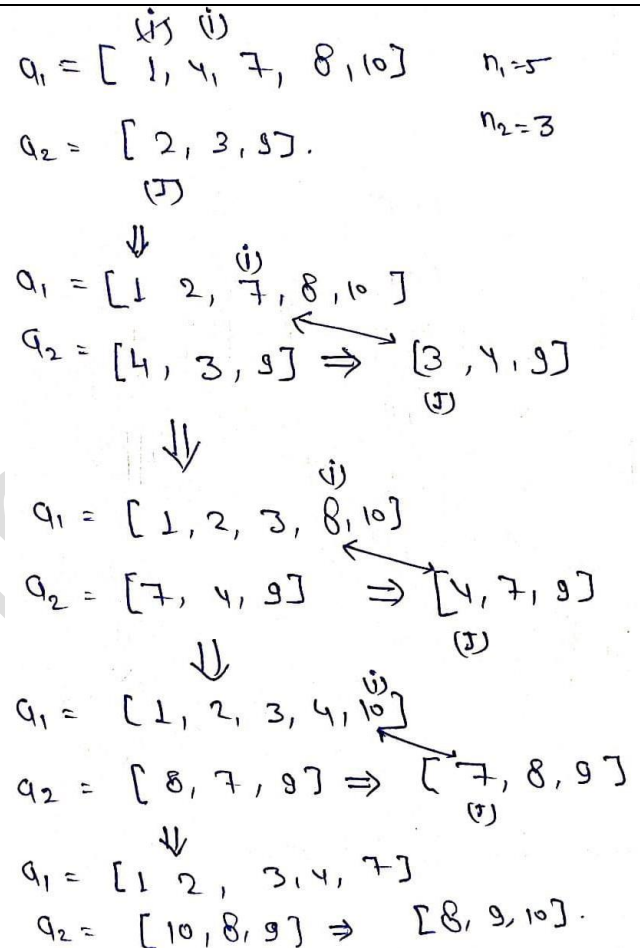 (i) (i)
a₁ = [ 1, 4, 7, 8, 10] n₁=5
a₂ = [ 2, 3, 9]. n₂=3
(J)
⇓
(i)
a₁ = [1 2, 7, 8, 10 ]
a₂ = [4, 3, 9] ⇒ [3, 4, 9]
(J)
⇓
(i)
a₁ = [ 1, 2, 3, 8, 10]
a₂ = [7, 4, 9] ⇒ [4, 7, 9]
(J)
⇓
(i)
a₁ = [1, 2, 3, 4, 10]
a₂ = [8, 7, 9] ⇒ [ 7, 8, 9]
(J)
⇓
a₁ = [1 2, 3, 4, 7]
a₂ = [10, 8, 9] ⇒ [8, 9, 10].